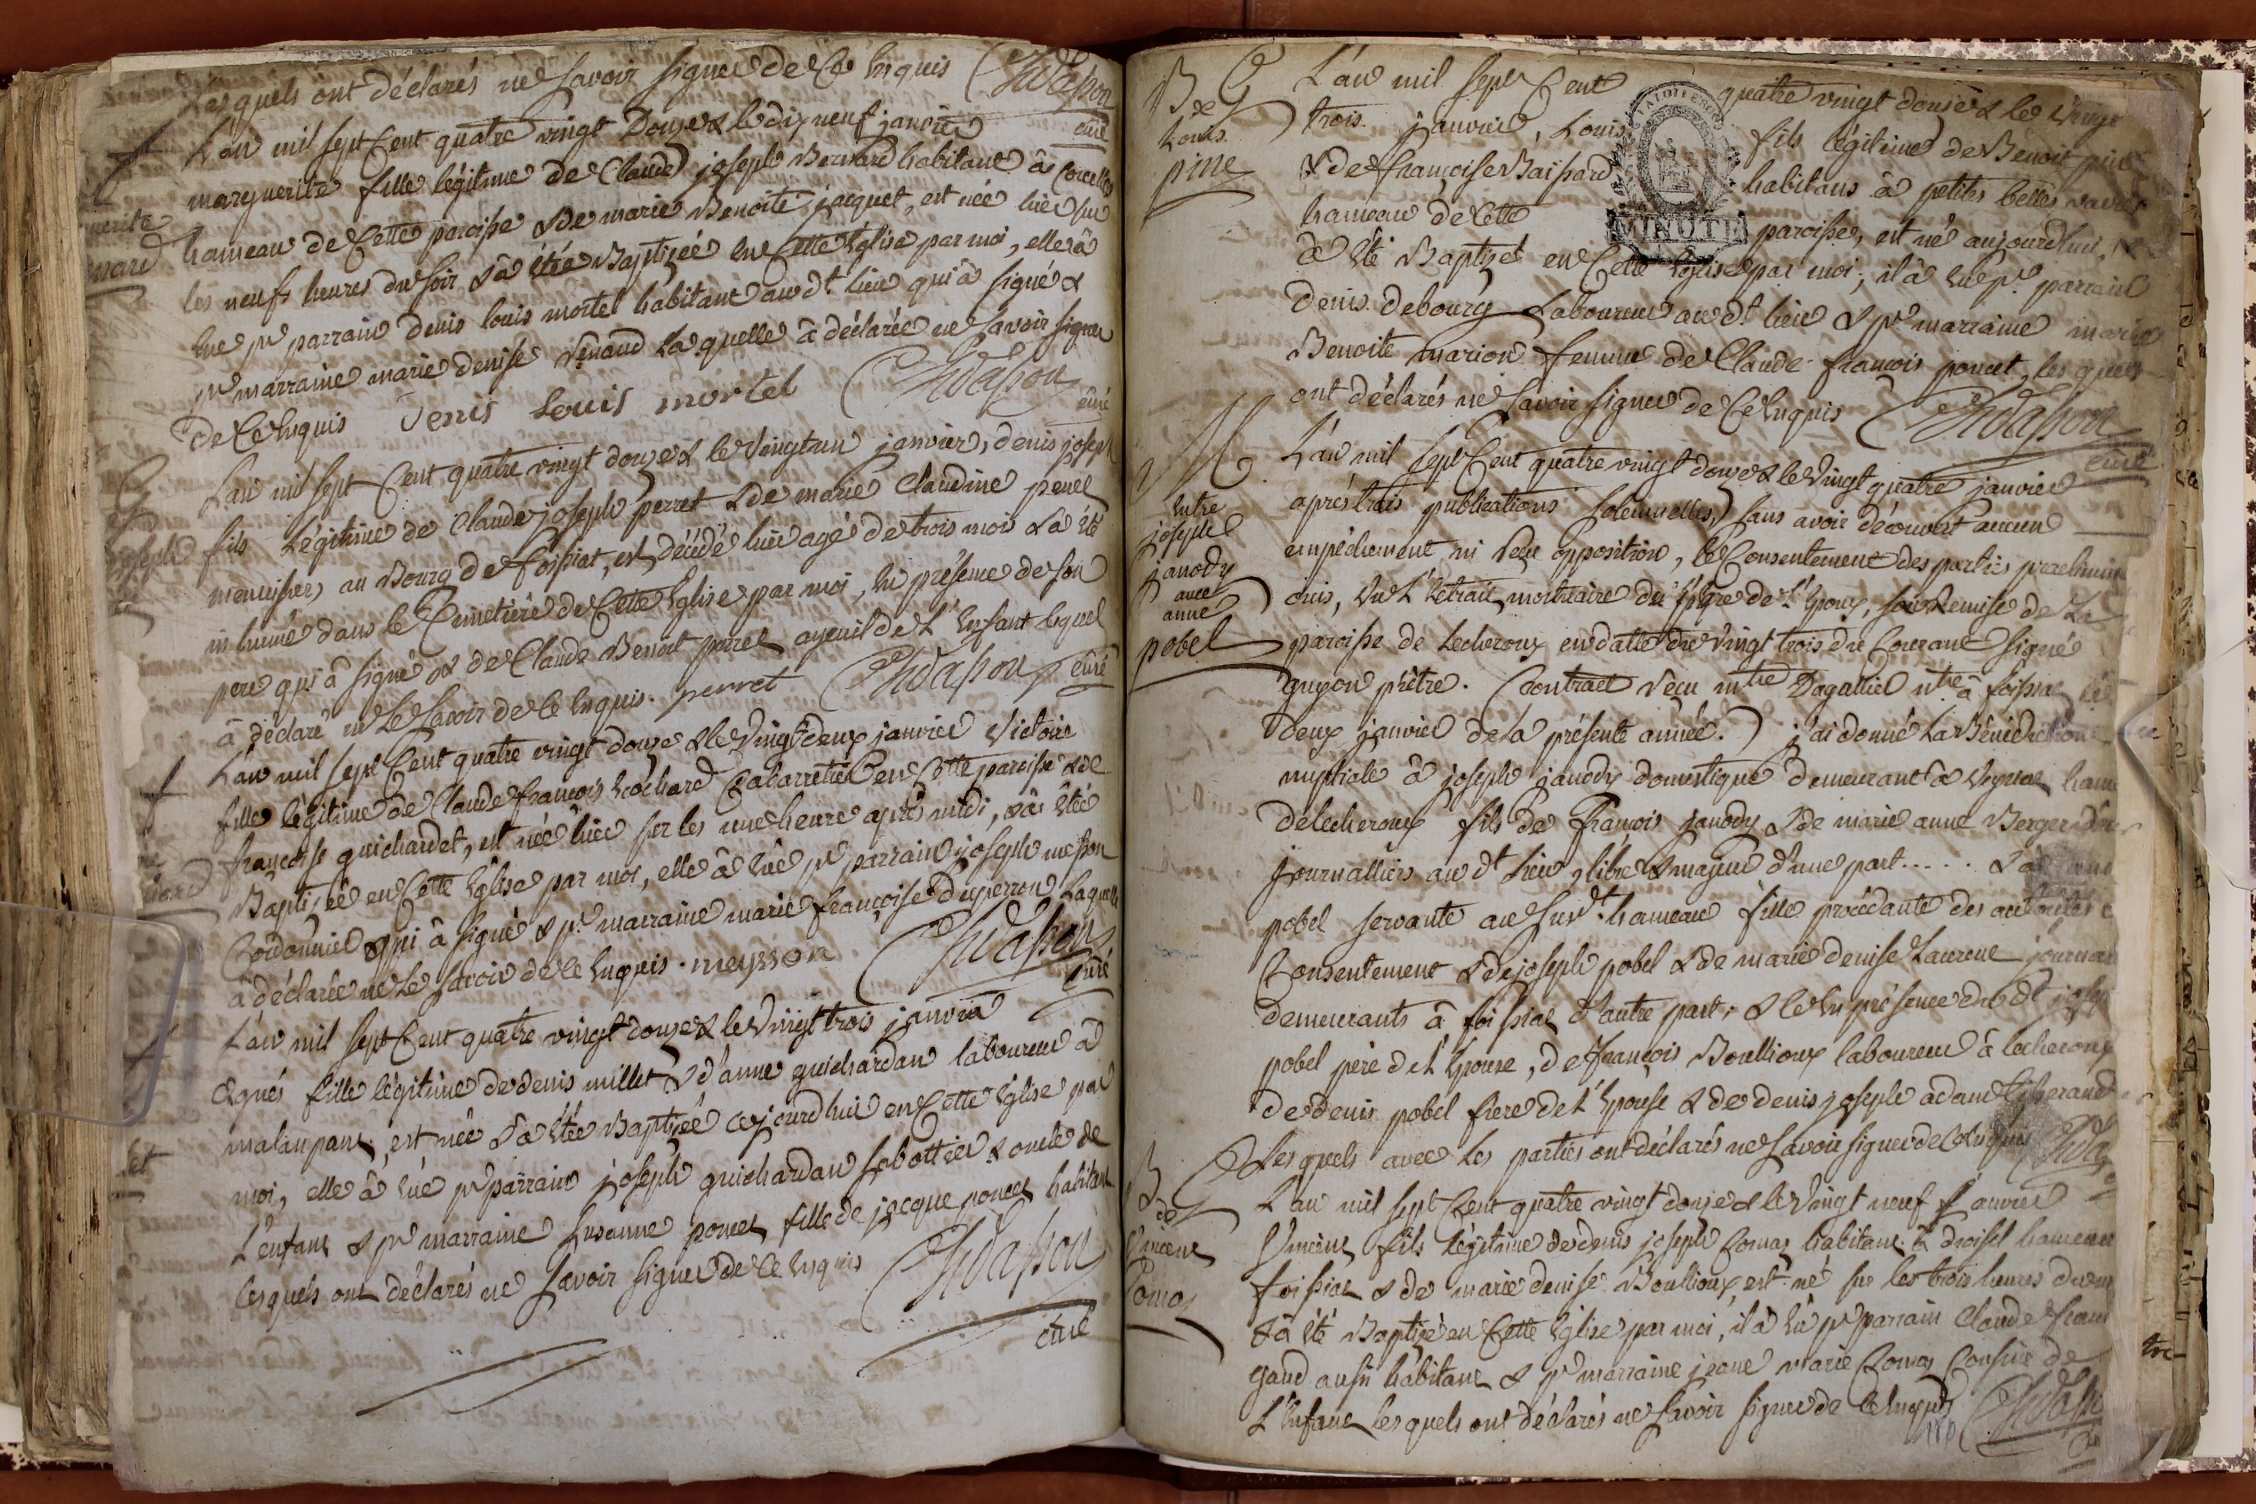 Les quels ont déclarés ne savoir signer de ce enquis
curé
L'an mil sept cent quatre vingt douze & le dix neuf janvier
marguerite fille légitime de Claude joseph Bernard habitant à
hameau de cette paroisse & de marie Benoite jacquet, est née hier sur
les neufs heures du soir & à étée Baptizée en cette Eglise par moi, elle à
eue pr parrain denis louis mortel habitant aud.t lieu qui à signé &
pr marraine marie denise renaud laquelle à déclarée ne savoir signer
de ce enquis Denis Louis mortel
curé
L'an mil sept cent quatre vingt douze & le vingtun janvier, denis joseph
fils légitime de Claude joseph perret & de marie Claudine
menuisier, au Bourg de foissiat, est décédé hier agé de trois mois & à été
inhumé dans le Cimetière de cette Eglise par moi, en présence de son
pere qui à signé & de Claude Benoit perret ayeuil de l'enfant lequel
à déclaré ne le savoir de ce enquis. perret curé
L'an mil sept cent quatre vingt douze & le vingt deux janvier Victoire
fille légitime de Claude françois Cabarretier en cette paroisse & de
françoise guichardet, est née hier sur les une heure après midi, & à étée
Baptizée en cette Eglise par moi, elle à eue pr parrain joseph messon
Cordonnier qui à signé & pr marraine marie françoise Duperron Laquelle
à déclarée ne le savoir de ce enquis. meysson
curé
L'an mil sept cent quatre vingt douze & le vingt trois janvier
Agnés fille légitime de denis millet & d'anne guichardan laboureur à
est née & à étée Baptizée cejourdhui en cette Eglise par
moi, elle à eüe pr parrain joseph guichardan sabottier & oncle de
L'enfant & pr marraine Susanne poncet fille de jacque poncet habitant
lesquels ont déclarés ne savoir signer de ce enquis
curé
B de
Louis
pine
L'an mil sept cent quatre vingt douze & le vingt
trois janvier, Louis fils légitime de Benoit pine
& de françoise habitans à petites belles
hameau de cette paroisse, est né aujourdhui,
à été Baptizé en cette Eglise par moi; il à eu pr parrain
Denis debourg Laboureur aud.t lieu & pr marraine marie
Benoite marion femme de Claude françois poncet, les quels
ont déclarés ne savoir signer de ce enquis
curé
M
entre
joseph
janody
avec
anne
pobel
L'an mil sept cent quatre vingt douze & le vingt quatre janvier
après trois publications solemnelles, sans avoir découvert aucun
empéchement, ni reçu opposition, le Consentement des parties
ouis, vu L'extrait mortuaire du père de l'Epoux, sous remise de
paroisse de Lecheroux en datte du vingt trois du Courant signé
guyon prêtre. Contract reçu m.tre Dagallier n.tre à foissiat
deux janvier de la présente année. j'ai donné La Bénédiction
nuptiale à joseph janody domestique demeurant à
de Lecheroux fils de François janody & de marie anne Berger
journalliers aud.t lieu, libre & majeur d'une part..... &
pobel servante au susd.t hameau fille procédante des autorités
Consentement & de joseph pobel & de marie denise Laurent
demeurants à foissiat d'autre part; & le en présence dud.t
pobel père de L'Epouse, de françois Boullioux laboureur à lecheroux
de denis pobel frere de L'Epouse & de denis joseph adam
Les quels avec les parties ont déclarés ne savoir signer de ce enquis
B de
Vincent
Comas
L'an mil sept cent quatre vingt douze & le vingt neuf janvier
Vincent fils légitime de denis joseph Comas habitant à hameau
foissiat & de marie denise Boullioux, est né sur les trois heures
& à été Baptizé en cette Eglise par moi, il à eu pr parrain Claude
gaud aussi habitant & pr marraine jeane marie Comas Cousine de
L'Enfant les quels ont déclarés ne savoir signer de ce enquis
180
LA LOI
MINUTE